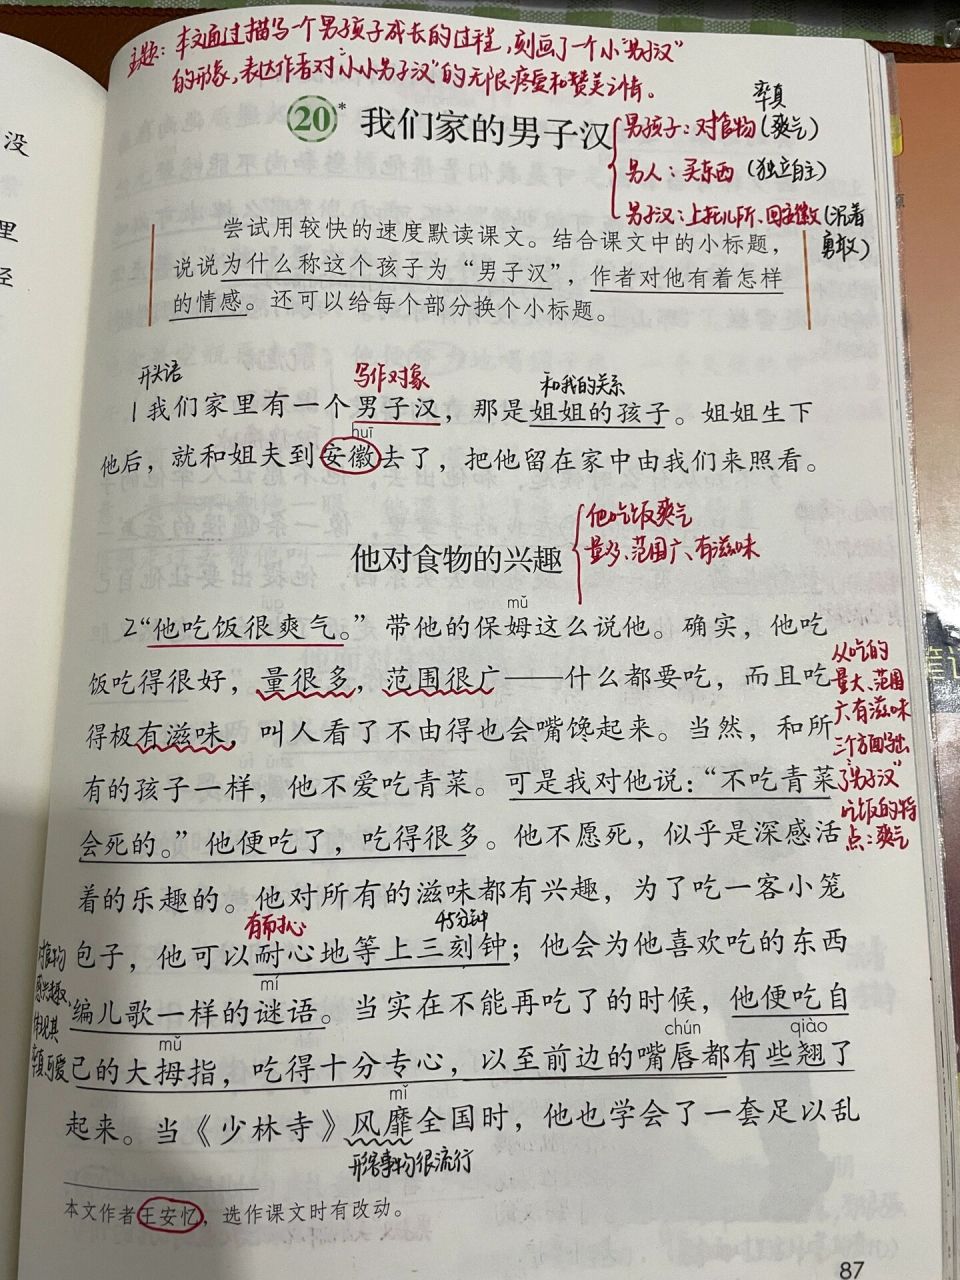 主题：本文通过描写一个男孩子成长的过程，刻画了一个小“男子汉”
的形象，表达作者对“小小男子汉”的无限疼爱和赞美之情。
20* 我们家的男子汉
率真
男孩子：对食物（爽气）
男人：买东西（独立自主）
男子汉：上托儿所、回安徽（沉着
勇敢）
没
里
经
尝试用较快的速度默读课文。结合课文中的小标题，
说说为什么称这个孩子为“男子汉”，作者对他有着怎样
的情感。还可以给每个部分换个小标题。
写作对象
和我的关系
1我们家里有一个男子汉，那是姐姐的孩子。姐姐生下
huī
他后，就和姐夫到安徽去了，把他留在家中由我们来照看。
他对食物的兴趣
他吃饭爽气
量多、范围广、有滋味
mǔ
2“他吃饭很爽气。”带他的保姆这么说他。确实，他吃
饭吃得很好，量很多，范围很广——什么都要吃，而且吃
得极有滋味，叫人看了不由得也会嘴馋起来。当然，和所
有的孩子一样，他不爱吃青菜。可是我对他说：“不吃青菜
会死的。”他便吃了，吃得很多。他不愿死，似乎是深感活
着的乐趣的。他对所有的滋味都有兴趣，为了吃一客小笼
从吃的
量大、范围
广、有滋味
三个方面写出
了“男子汉”
吃饭的特
点：爽气
有耐心
45分钟
包子，他可以耐心地等上三刻钟；他会为他喜欢吃的东西
mí
编儿歌一样的谜语。当实在不能再吃了的时候，他便吃自
mǔ chún qiào
己的大拇指，吃得十分专心，以至前边的嘴唇都有些翘了
mǐ
起来。当《少林寺》风靡全国时，他也学会了一套足以乱
对食物
感兴趣，
体现其
率真可爱
形容事物很流行
本文作者王安忆，选作课文时有改动。
87